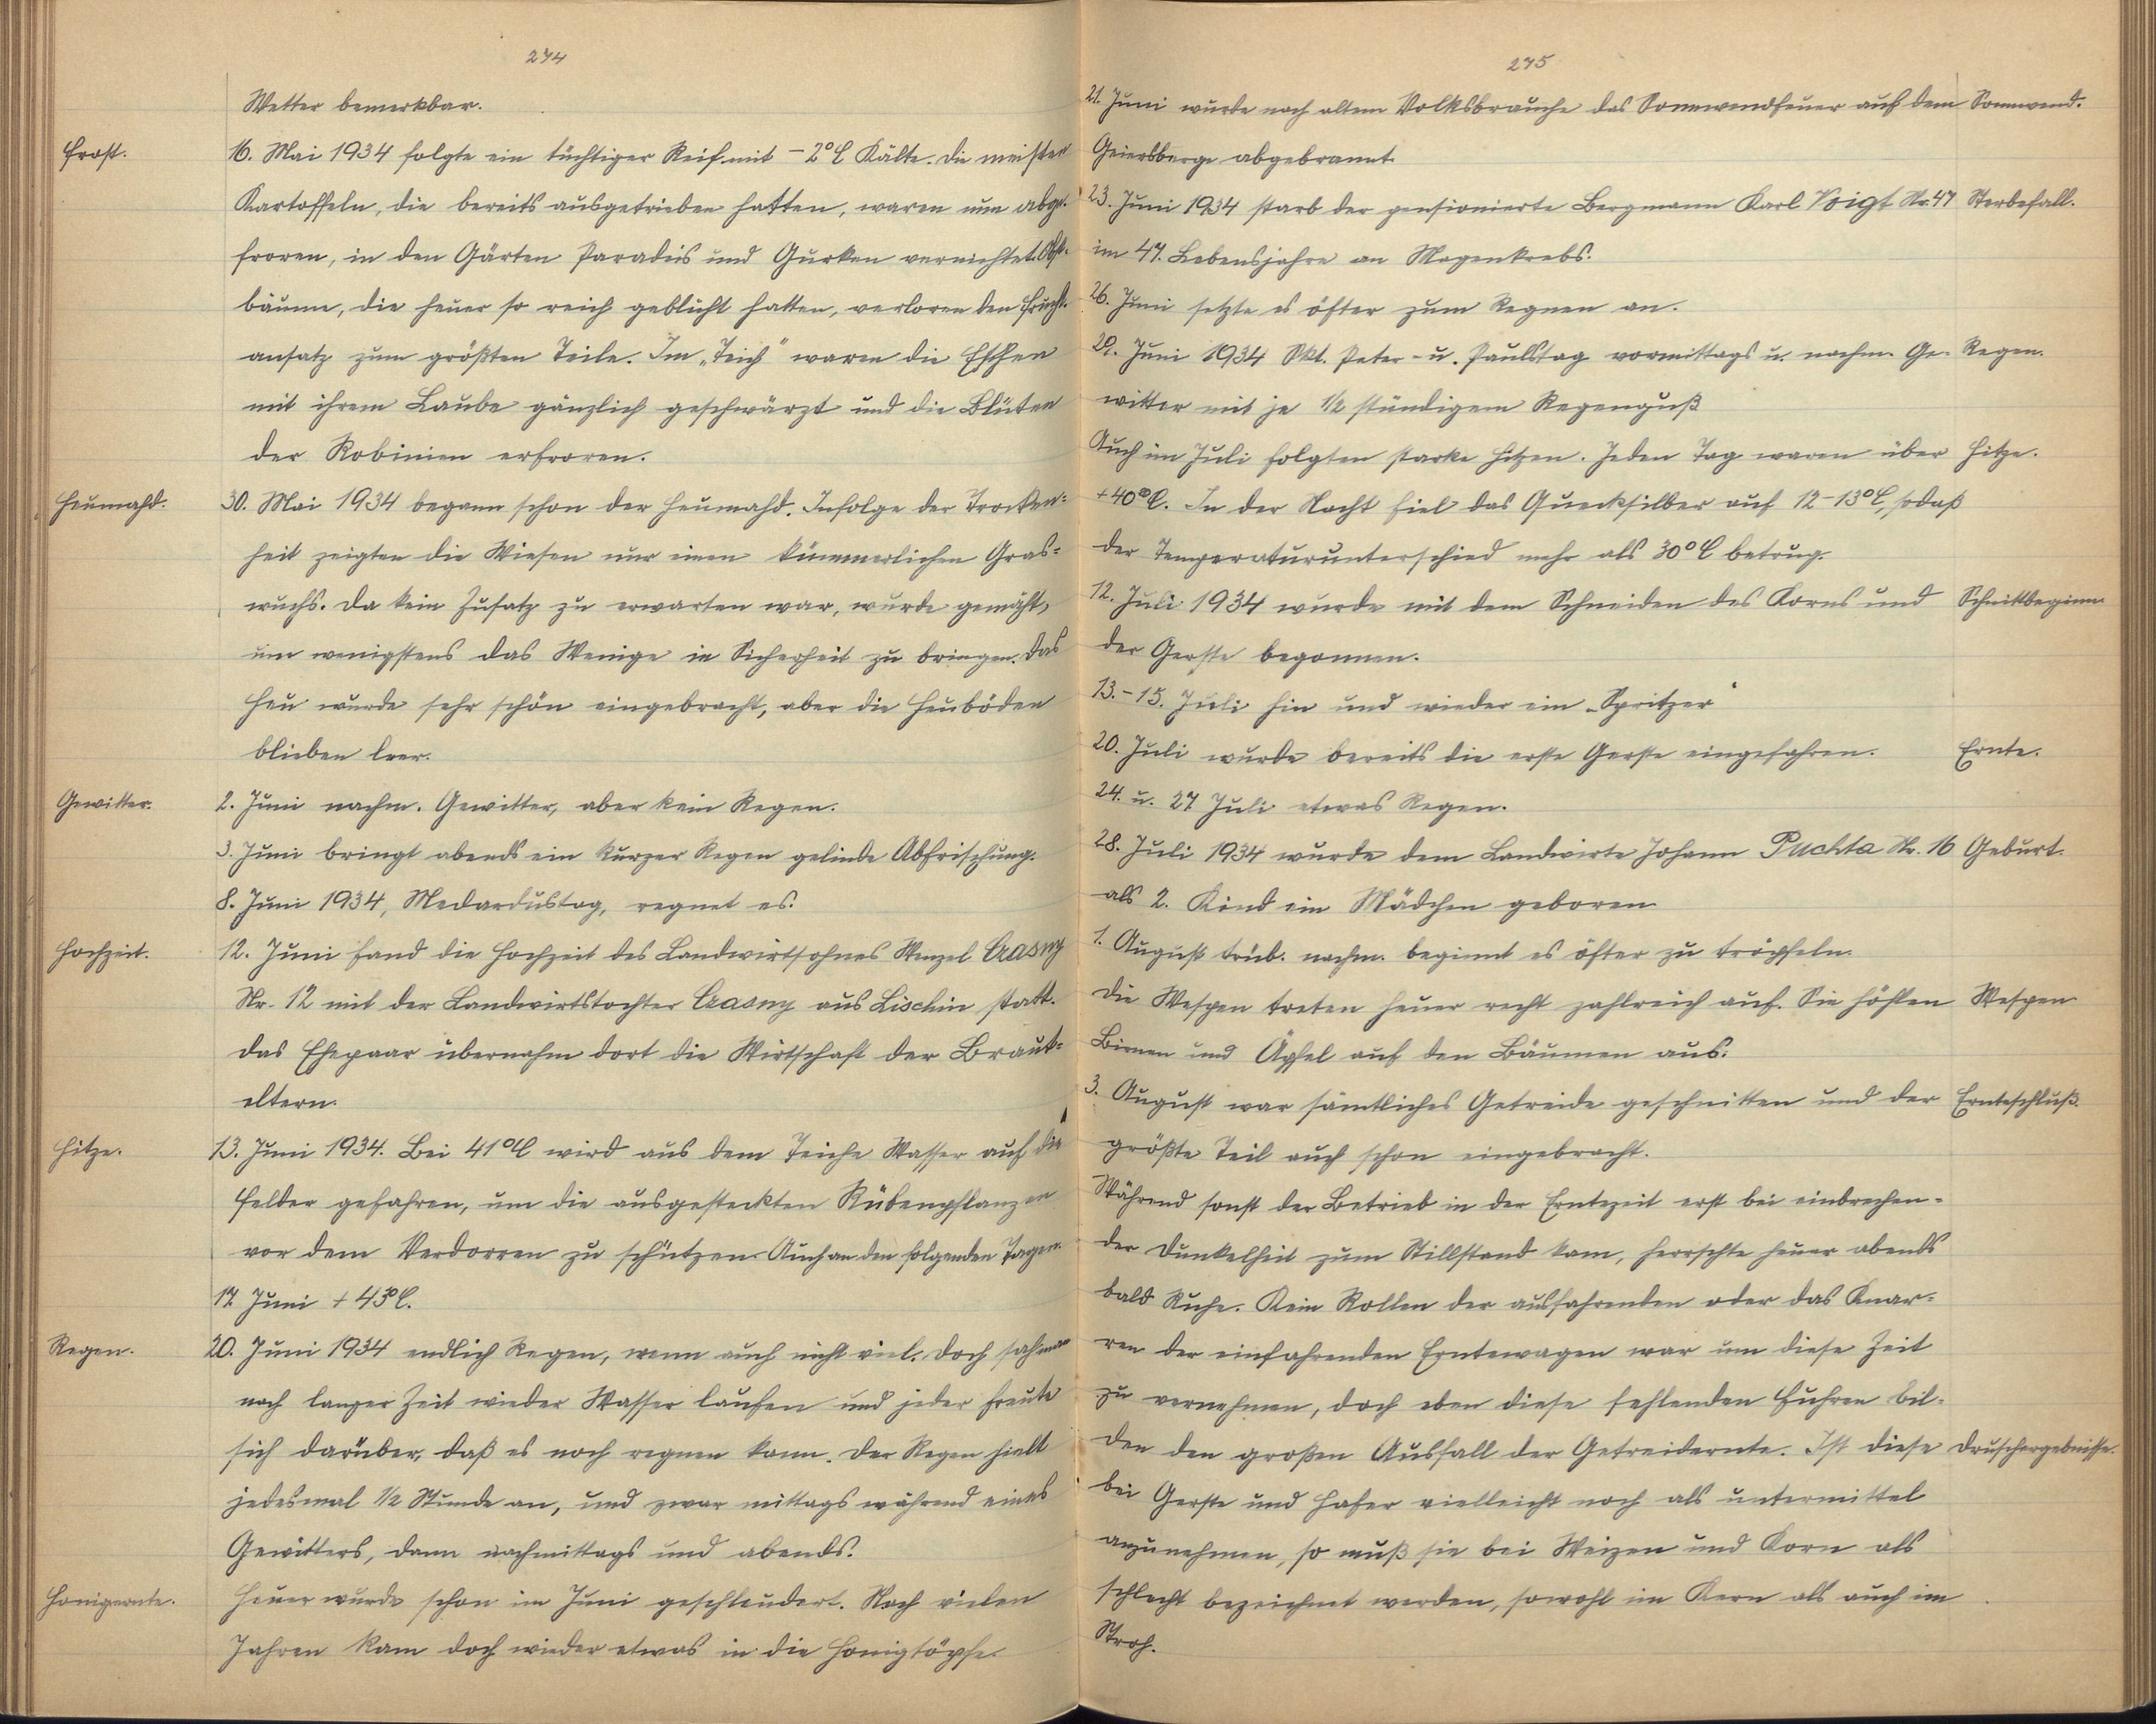 274
Wetter bemerkbar.
Frost.
16. Mai 1934 folgte ein tüchtiger Reif mit -2°C Kälte. Die meisten
Kartoffeln, die bereits ausgetrieben hatten, waren nun abge-
froren, in den Gärten Paradeis und Gurken vernichtet. Obst-
bäume, die heuer so reich geblüht hatten, verloren den Frucht-
ansatz zum größten Teile. Im „Teich" waren die Eschen
mit ihrem Laube gänzlich geschwärzt und die Blüten
der Robinien erfroren.
Heumahd.
30. Mai 1934 begann schon der Heumahd. Infolge der Trocken-
heit zeigten die Wiesen nur einen kümmerlichen Gras-
wuchs. Da kein Zusatz zu erwarten war, wurde gemäht,
um wenigstens das Wenige in Sicherheit zu bringen. Das
Heu wurde sehr schön eingebracht, aber die Heuböden
blieben leer.
Gewitter.
2. Juni nachm. Gewitter, aber kein Regen.
3. Juni bringt abends ein kurzer Regen gelinde Abfrischung.
8. Juni 1934, Medardustag, regnet es.
Hochzeit.
12. Juni fand die Hochzeit des Landwirtsohnes Wenzel Crasny
Nr. 12 mit der Landwirtstochter Crasny aus Lischin statt.
Das Ehepaar übernahm dort die Wirtschaft der Braut-
eltern.
Hitze.
13. Juni 1934. Bei 41°C wird aus dem Teiche Wasser auf die
Felder gefahren, um die ausgesteckten Rübenpflanzen
vor dem Verdorren zu schützen. Auch an den folgenden Tagen.
17. Juni + 43°C.
Regen.
20. Juni 1934 endlich Regen, wenn auch nicht viel. Doch sah man
nach langer Zeit wieder Wasser laufen und jeder freute
sich darüber, daß es noch regnen kann. Der Regen hielt
jedesmal 1/2 Stunde an, und zwar mittags während eines
Gewitters, dann nachmittags und abends.
Honigernte.
Heuer wurde schon im Juni geschleudert. Nach vielen
Jahren kam doch wieder etwas in die Honigtöpfe.
275
21. Juni wurde nach altem Volksbrauche das Sonnwendfeuer auf dem
Sonnwend.
Geiersberge abgebrannt.
23. Juni 1934 starb der pensionierte Bergmann Karl Voigt Nr. 47
Sterbefall.
im 47. Lebensjahre an Magenkrebs.
26. Juni setzte es öfter zum Regnen an.
29. Juni 1934 Skt. Peter- u. Paulstag vormittags u. nachm. Ge-
Regen.
witter mit je 1/2 stündigem Regenguß
Auch im Juli folgten starke Hitzen. Jeden Tag waren über
Hitze.
+40°C. In der Nacht fiel das Quecksilber auf 12-13°C, sodaß
der Temperaturunterschied mehr als 30°C betrug.
12. Juli 1934 wurde mit dem Schneiden des Korns und
Schnittbeginn.
der Gerste begonnen.
13.-15. Juli hin und wieder ein „Spritzer"
20. Juli wurde bereits die erste Gerste eingefahren.
Ernte.
24. u. 27 Juli etwas Regen.
28. Juli 1934 wurde dem Landwirte Johann Puchta Nr. 16
Geburt.
als 2. Kind ein Mädchen geboren.
1. August trüb. nachm. beginnt es öfter zu tröpfeln.
Die Wespen treten heuer recht zahlreich auf. Sie höhlen
Wespen
Birnen und Äpfel auf den Bäumen aus.
3. August war sämtliches Getreide geschnitten und der
Ernteschluß.
größte Teil auch schon eingebracht.
Während sonst der Betrieb in der Erntezeit erst bei einbrechen-
der Dunkelheit zum Stillstand kam, herrschte heuer abends
bald Ruhe. Kein Rollen der ausfahrenden oder das Knar-
ren der einfahrenden Erntewagen war um diese Zeit
zu vernehmen, doch eben diese fehlenden Fuhren bil-
den den großen Ausfall der Getreideernte. Ist diese
Druschergebnisse.
bei Gerste und Hafer vielleicht noch als untermittel
anzunehmen, so muß sie bei Weizen und Korn als
schlecht bezeichnet werden, sowohl im Kern als auch im
Stroh.